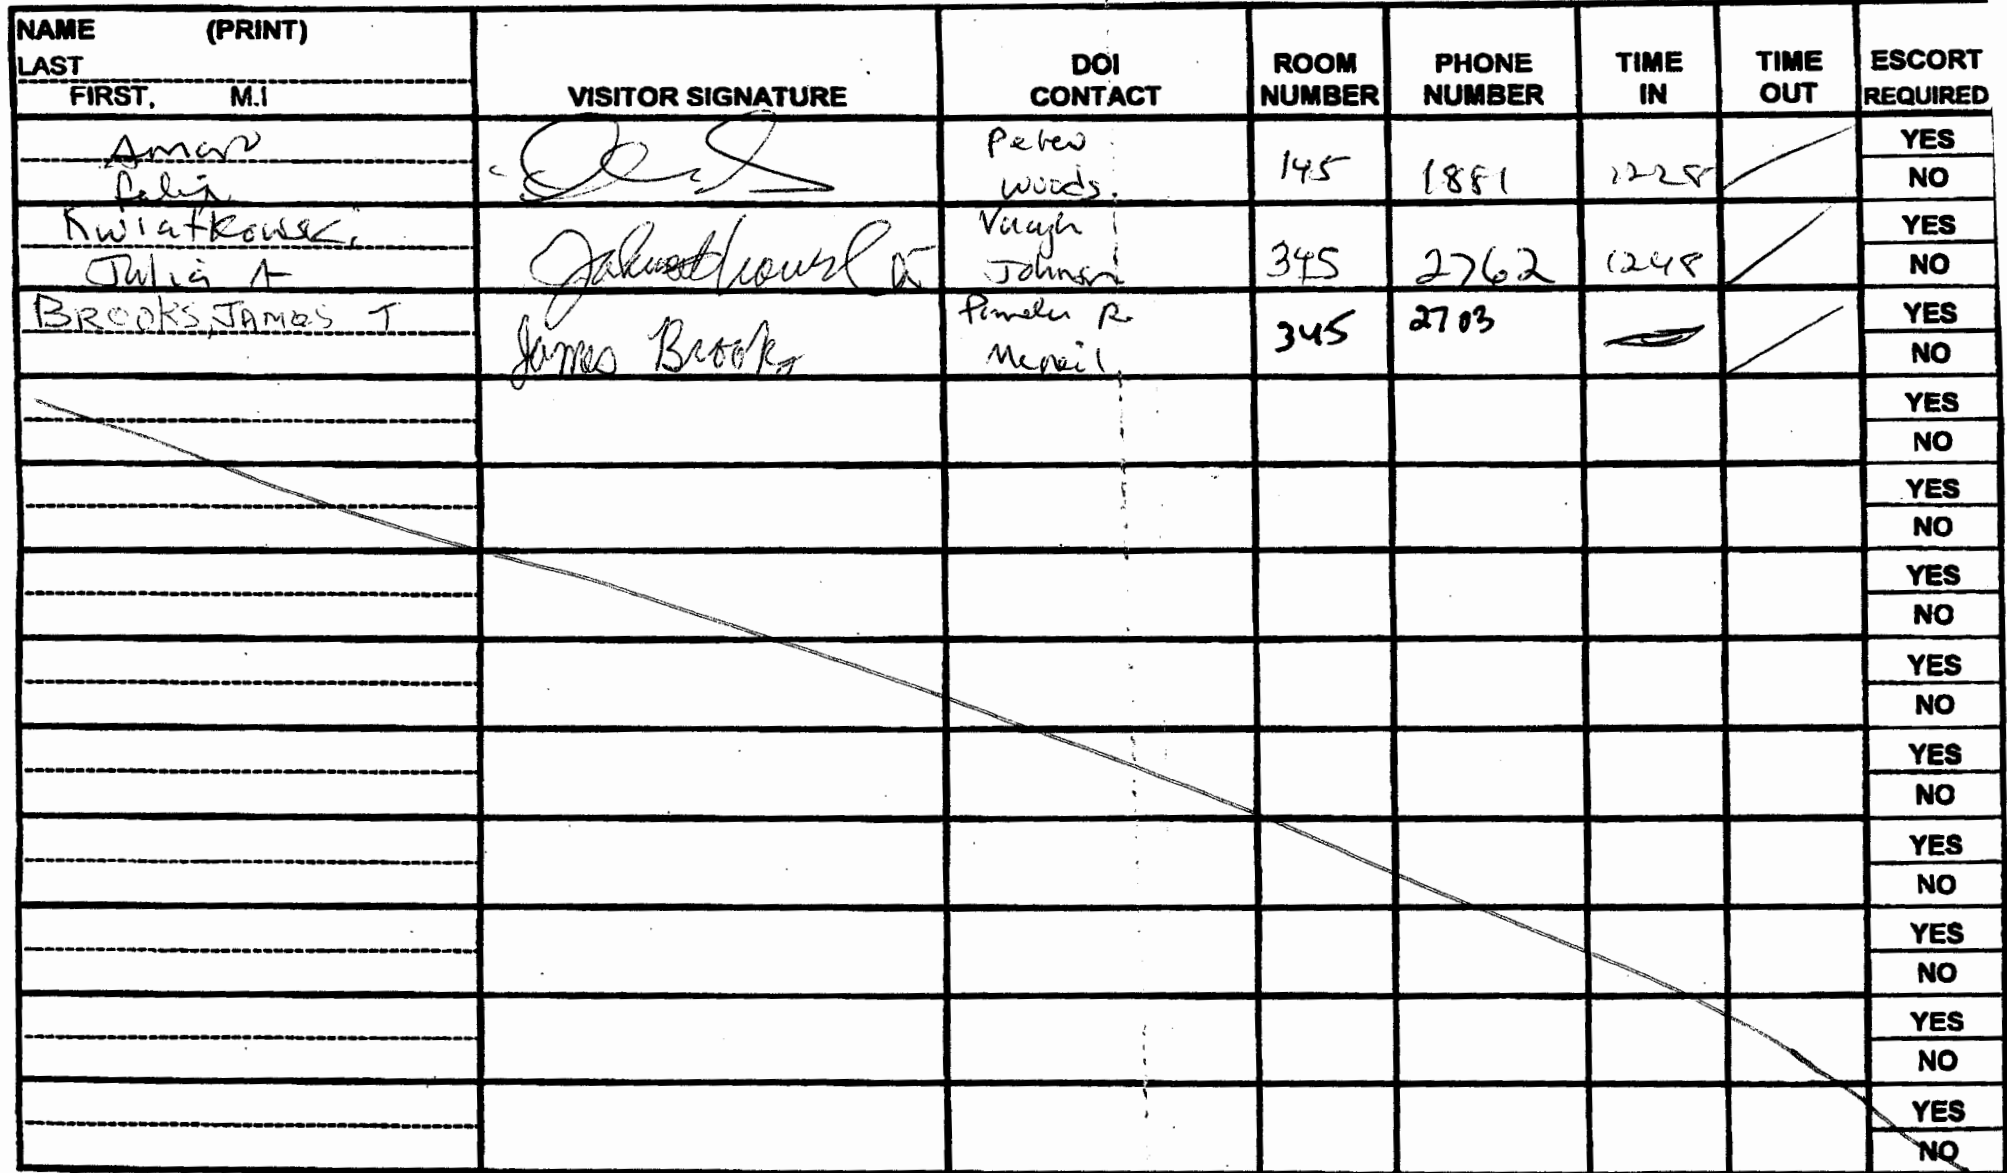 NAME (PRINT)
LAST
FIRST, M.I
VISITOR SIGNATURE
DOI
CONTACT
ROOM
NUMBER
PHONE
NUMBER
TIME
IN
TIME
OUT
ESCORT
REQUIRED
Peter
Woods.
145
1881
1228
YES
NO
Kwiatkowski,
Julia A
Johnson
345
2762
1248
YES
NO
BROOKS, JAMES T
James Brooks
Mcneil
345
2703
YES
NO
YES
NO
YES
NO
YES
NO
YES
NO
YES
NO
YES
NO
YES
NO
YES
NO
YES
NO